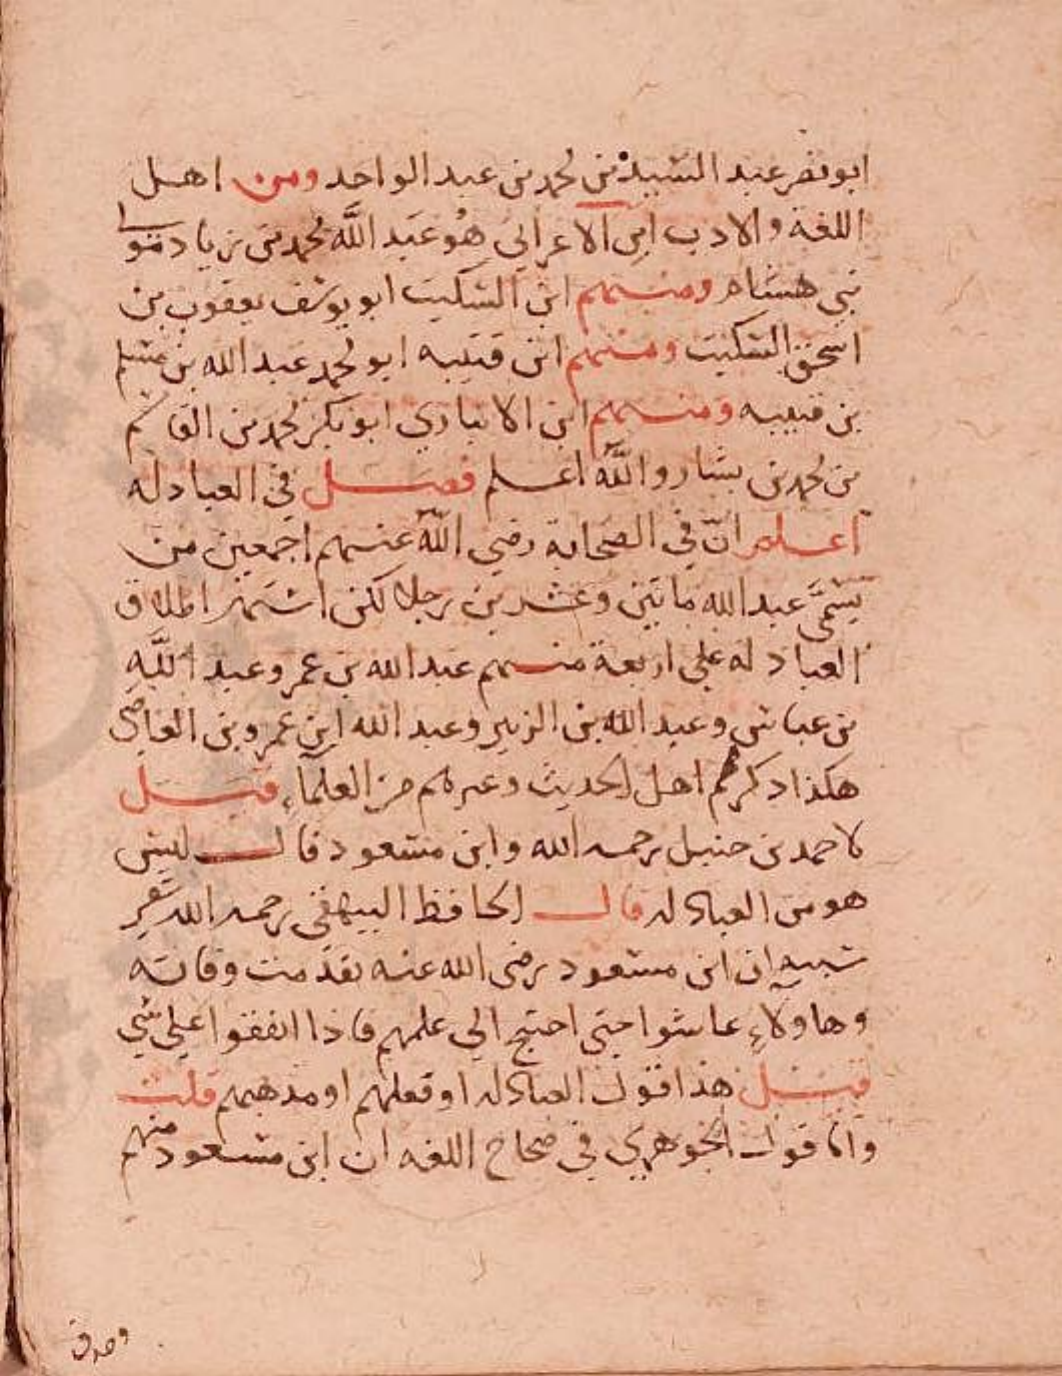 ابو نصر عبد السيد بن محمد بن عبد الواحد ومن اهل
اللغة والادب ابن الاعرابي هو عبد الله محمد بن زياد مولى
بني هشام ومنهم ابن السكيت ابو يوسف يعقوب بن
اسحق السكيت ومنهم ابن قتيبه ابو محمد عبد الله بن مسلم
بن قتيبه ومنهم ابن الانباري ابو بكر محمد بن القاسم
بن محمد بن بشار والله اعلم فصل في العبادله
اعلم ان في الصحابة رضي الله عنهم اجمعين من
يسمى عبد الله مايتين وعشرين رجلا لكن اشتهر اطلاق
العبادله علي اربعة منهم عبد الله بن عمر وعبد الله
بن عباس وعبد الله بن الزبير وعبد الله ابن عمرو بن العاص
هكذا ذكرهم اهل الحديث وغيرهم من العلماء قيل
لاحمد بن حنبل رحمه الله وابن مسعود قال ليس
هو من العبادله قال الحافظ البيهقي رحمه الله
ان ابن مسعود رضي الله عنه تقدمت وفاته
وهاولاء عاشوا حتى احتيج الي علمهم فاذا اتفقوا علي شي
قيل هذا قول العبادله او فعلهم او مذهبهم قلت
واما قول الجوهري في صحاح اللغه ان ابن مسعود منهم